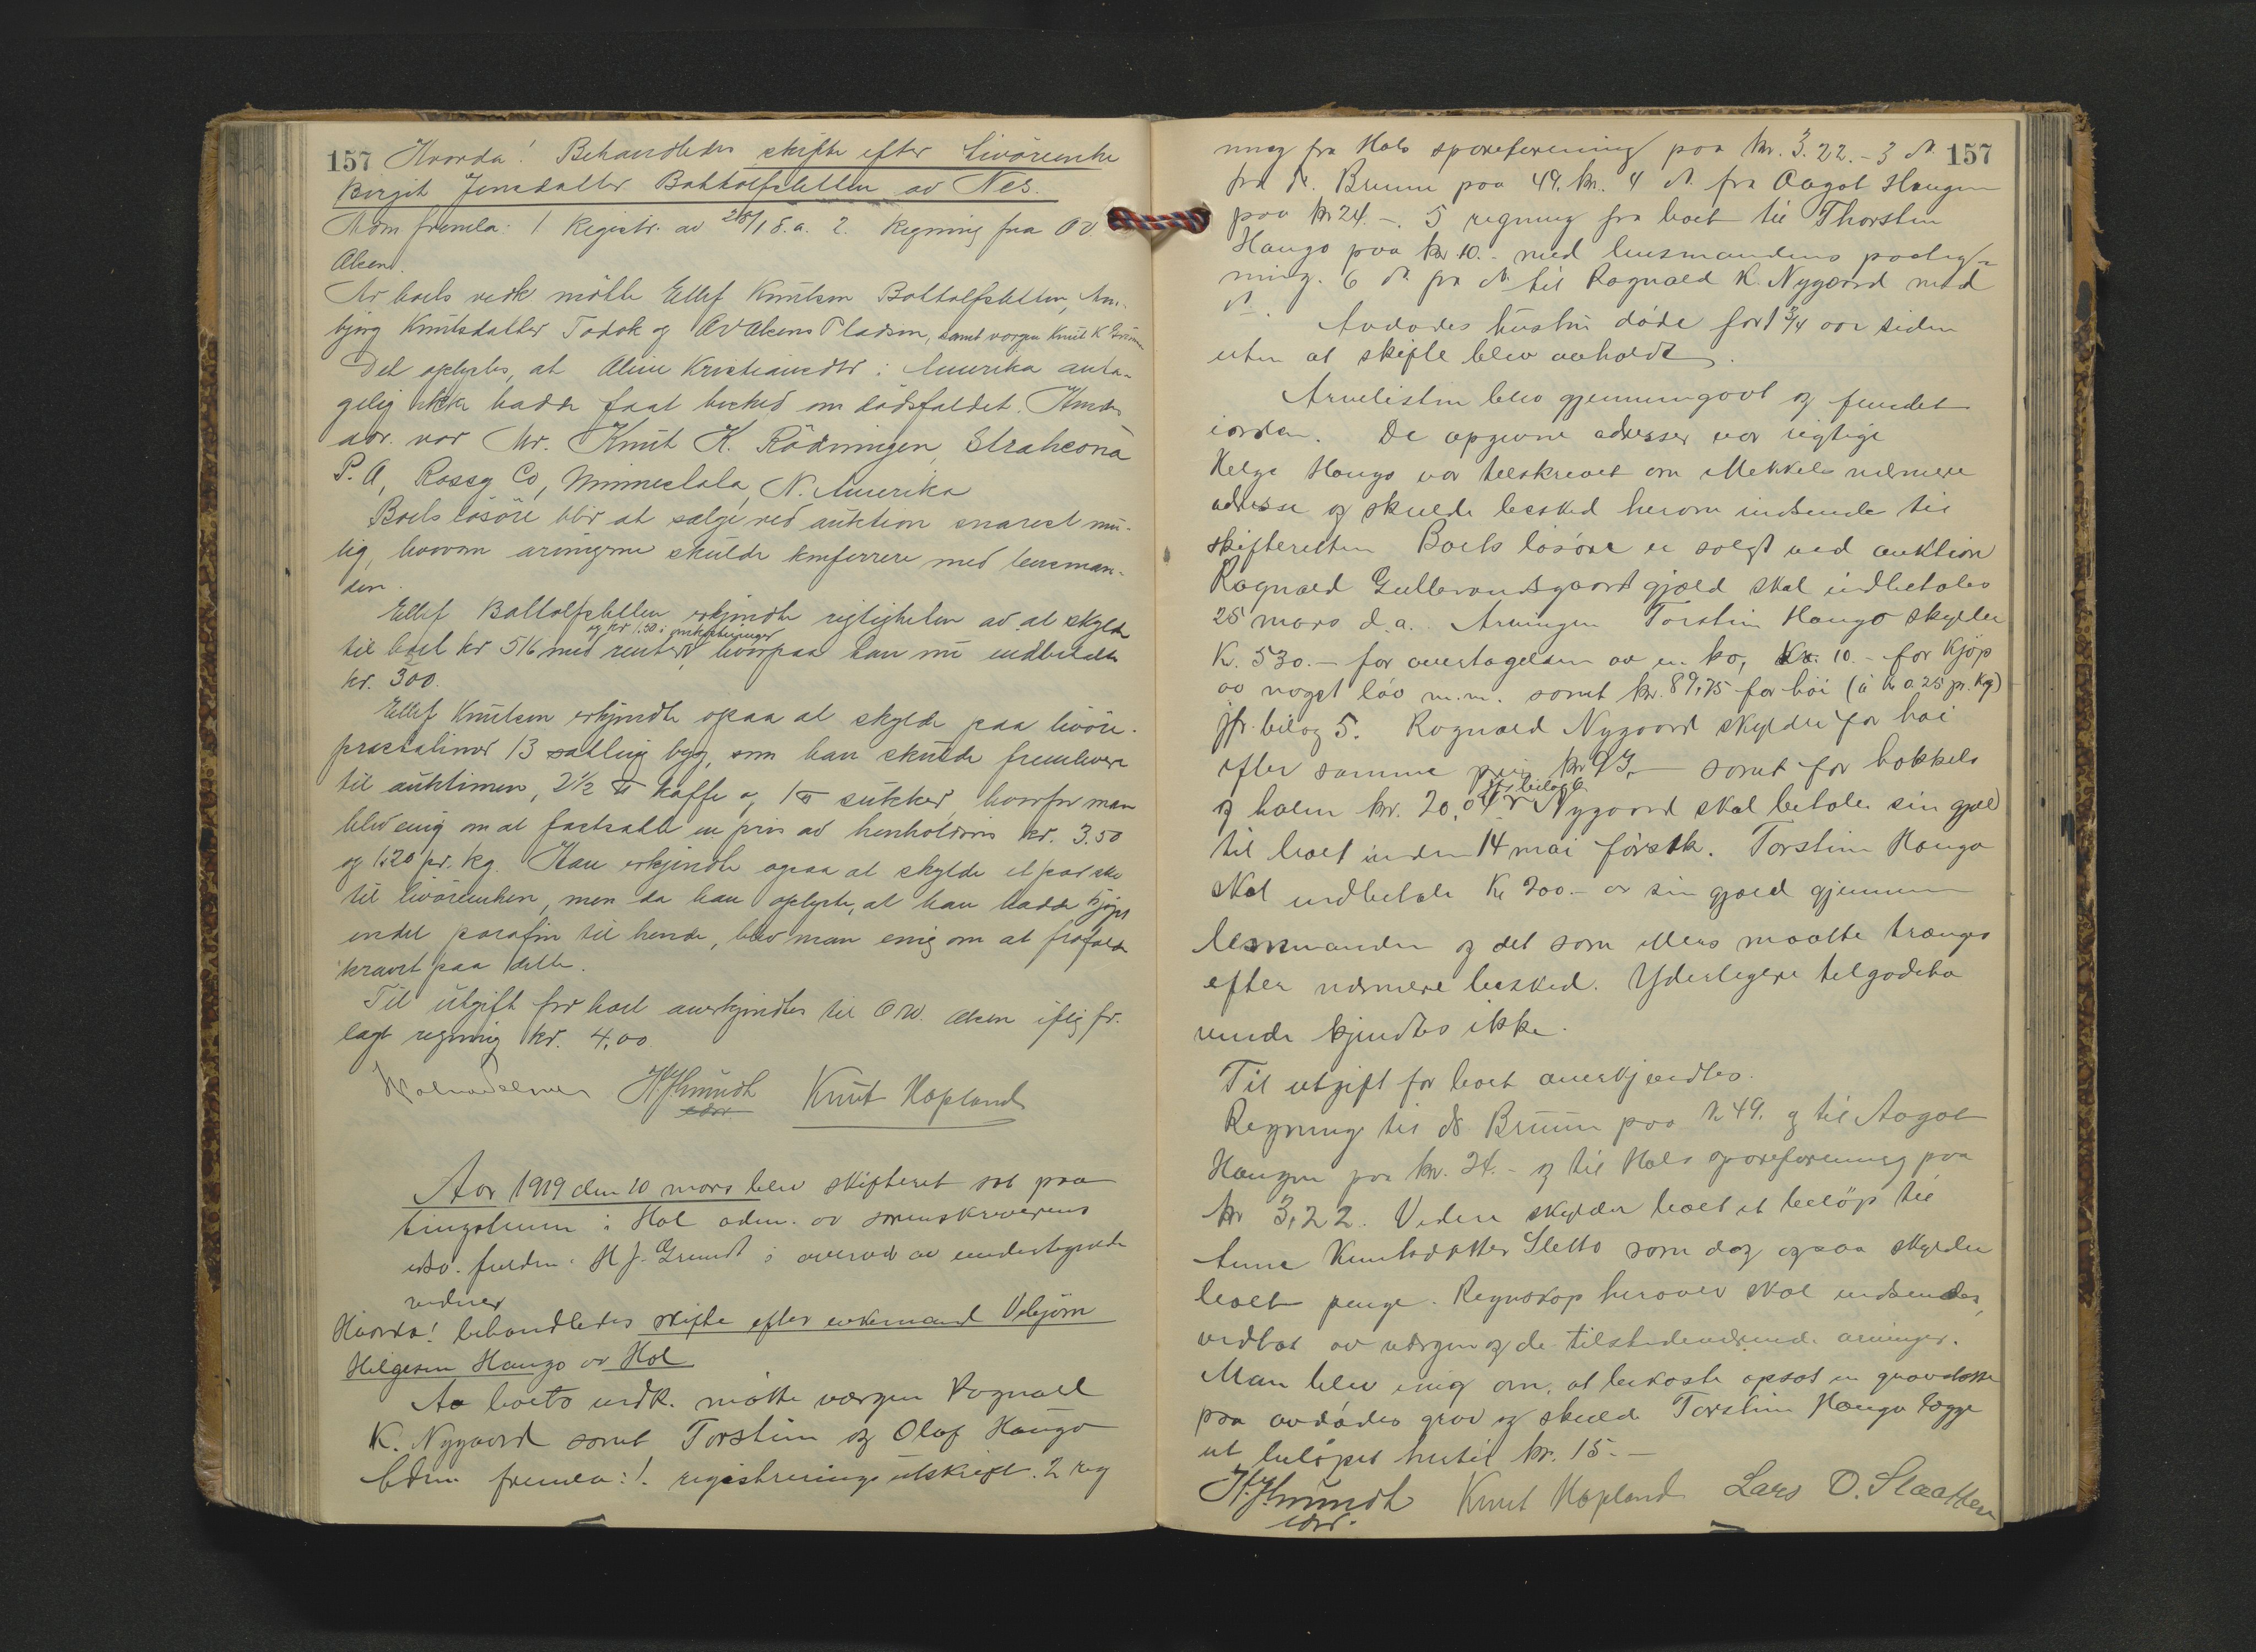 157 Hvorda! Behandledes skifte efter Livöreenke
Birgit Jonsdatter Bottolfsletten av Nes.
Adm fremla: 1 Registr. av 28/1 d. a. 2. Regning fra O V
Aleen.
Av boets vedk mötte Ellef Knutsen Bottolfsletten, Am-
björg Knutsdatter Todok og OV Aleens Pladsen, samt vergen Knut K
Det oplystes, at Aline Kristiansdtr i Amerika anta-
gelig ikke hadde faat besked om dödsfaldet. Hendes
adr. var Mr. Knut K. Rödningen, Strahcona
P. A, Rossg Co, Minneslala, N. Amerika
Boets lösöre blir at sælge ved auktion snarest mu-
lig, hvorom arvingerne skulde konferrere med lensman-
den.
Ellef Bottolfsletten erkjendte rigtigheten av at skylde
og kr 1.50 i
til boet kr 516 med renter, hvorpaa han nu indbetalte
kr. 300.
Ellef Knutsen erkjendte ogsaa at skylde paa livöre-
præstationer 13 sætting byg, som han skulde fremlevere
til auktionen, 2½ ℔ kaffe og 1 ℔ sukker, hvorfor man
blev enig om at fastsætte en pris av henholdsvis kr. 3.50
og 1.20 pr. kg. Han erkjendte ogsaa at skylde et par sko
til livöreenken, men da han oplyste, at han hadde kjöpt
endel parafin til hende, blev man enig om at frafalde
kravet paa dette.
Til utgift for boet anerkjendtes til O W. Aleen iflg fr.
lagt regning kr. 4,00
H. J. Grundt Knut Kopland
Aar 1919 den 10 mars blev skifteret sat paa
tingstuen i Hol adm. av sorenskriverens
edsv. fuldm. H J. Grundt i overvær av undertegnede
vidner
Hvorda! behandledes skifte efter enkemand Vebjörn
Helgesen Haugo av Hol
Av boets vedk. mötte værgen Ragnald
K. Nygaard samt Torstein og Olaf Haugo
Adm fremla: 1. registreringsutskrift. 2 reg
ning fra Hols sporeforening paa kr. 3.22. – 3 do. 157
fra d. Bruun paa 49. kr. 4 do. fra Aagot Haugen
paa kr 24. –. 5 regning fra boet til Thorsten
Haugo paa kr 10. – med lensmandens paateg-
ning. 6 do. fra do. til Ragnald K. Nygaard med
do.
Avdödes hustru döde for 1 ¾ aar siden
uten at skifte blev avholdt.
Arvelisten blev gjennemgaat og fundet
iorden. De opgivne adresser var rigtige
Helge Haugo var tilskrevet om Mekkels nærmere
adresse og skulde besked herom indsende til
skifteretten. Boets lösöre er solgt ved auktion
Ragnald Gullevandsgaard gjæld skal indbetales
25 mars d. a. Arvingen Torstein Haugo skylder
K. 530. – for overtagelsen av en ko, Kr. 10. – for kjöp
av noget löv m.m. samt kr. 89,75 for höi (à kr 0.25 pr. kg)
jfr. bilag 5. Ragnald Nygaard skylder for höi
efter samme pris kr 93, – samt for bokkels
jfr bilag 6
og halm kr. 20,04. Nygaard skal betale sin gjæld
til boet inden 14 mai förstk. Torstein Haugo
skal indbetale Kr 200. – av sin gjæld gjennem
lensmanden og det som ellers maatte trænges
efter nærmere besked. Yderligere tilgodeha
vende kjendtes ikke.
Til utgift for boet anerkjendtes.
Regning til d Bruun paa kr 49. og til Aagot
Haugen paa kr. 24. – og til Hols sporeforening paa
kr 3,22. Videre skylder boet et belöp til
Anne Knutsdatter Sletto som dog ogsaa skylder
boet penge. Regnskap herover skal indsendes,
vedtat av værgen og de tilstedeværende arvinger.
Man blev enig om, at bekoste opsat en gravstötte
paa avdödes grav og skulde Torstein Haugo lægge
ut belöpet hertil kr. 15. –
H. J. Grundt Knut Kopland Lars O. Slaatten
edsv.